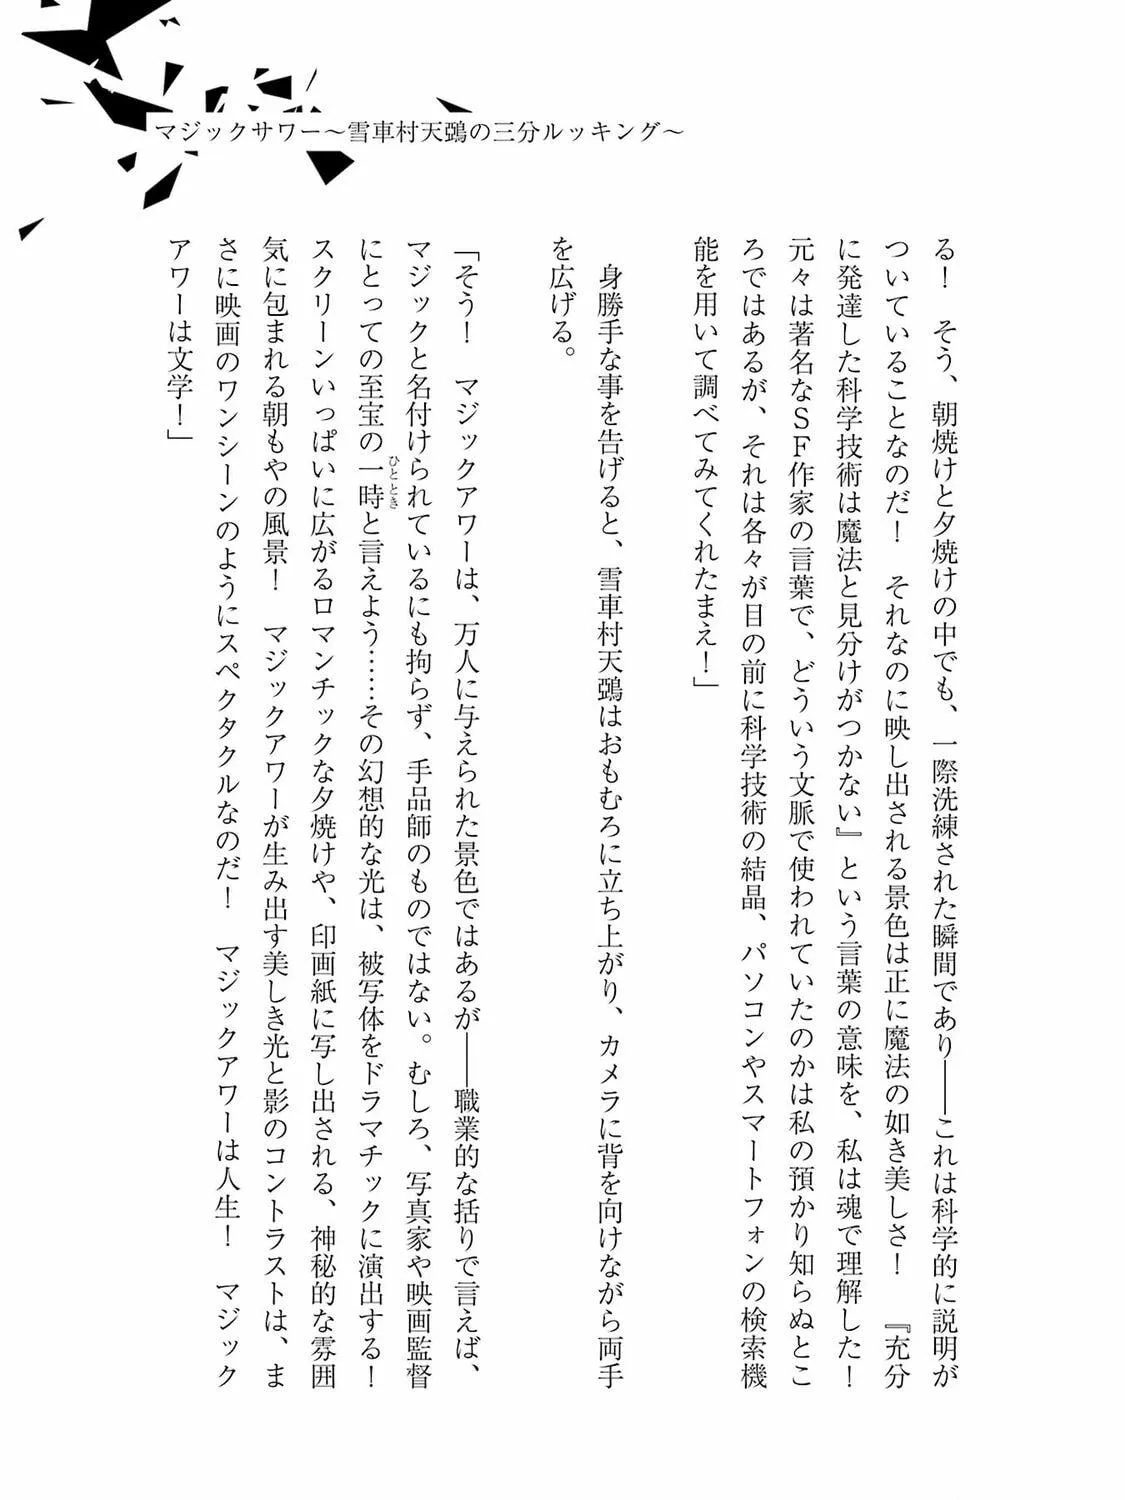 マジックサワー～雪車村天鵼の三分ルッキング～
る！　そう、朝焼けと夕焼けの中でも、一際洗練された瞬間であり――これは科学的に説明が
ついていることなのだ！　それなのに映し出される景色は正に魔法の如き美しさ！　『充分
に発達した科学技術は魔法と見分けがつかない』という言葉の意味を、私は魂で理解した！
元々は著名なＳＦ作家の言葉で、どういう文脈で使われていたのかは私の預かり知らぬとこ
ろではあるが、それは各々が目の前に科学技術の結晶、パソコンやスマートフォンの検索機
能を用いて調べてみてくれたまえ！」
身勝手な事を告げると、雪車村天鵼はおもむろに立ち上がり、カメラに背を向けながら両手
を広げる。
「そう！　マジックアワーは、万人に与えられた景色ではあるが――職業的な括りで言えば、
マジックと名付けられているにも拘らず、手品師のものではない。むしろ、写真家や映画監督
にとっての至宝の一時ひとときと言えよう……その幻想的な光は、被写体をドラマチックに演出する！
スクリーンいっぱいに広がるロマンチックな夕焼けや、印画紙に写し出される、神秘的な雰囲
気に包まれる朝もやの風景！　マジックアワーが生み出す美しき光と影のコントラストは、ま
さに映画のワンシーンのようにスペクタクルなのだ！　マジックアワーは人生！　マジック
アワーは文学！」